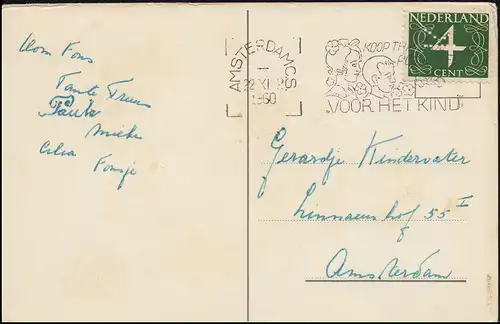 Oom Fons
Tante Truus
Paul
Mieke
Cilia Fonsje
AMSTERDAM CS
22 XI
1960
KOOP
VOOR HET KIND
NEDERLAND
4
CENT
Gerardje Kindervater
Linnaeushof 55 I
Amsterdam